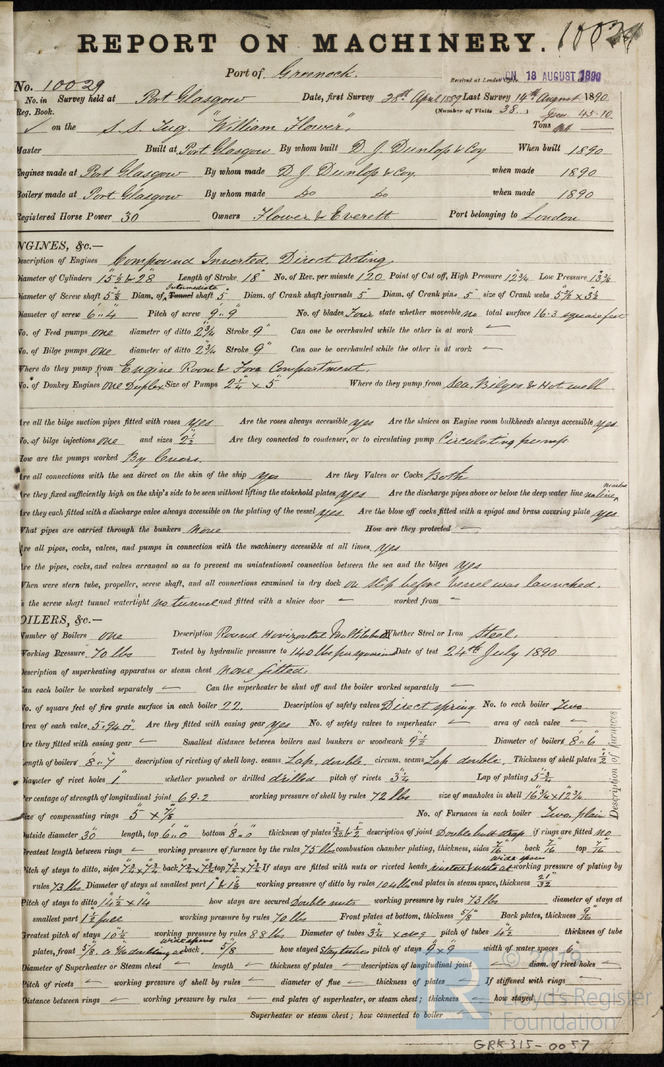 REPORT ON MACHINERY. 10029
Port of Greenock.
Received at London Office MON. 18 AUGUST 1890
No. 10029
No. in Survey held at Port Glasgow Date, first Survey 28th April 1889 Last Survey 14th August 1890
Reg. Book. (Number of Visits 38.)
on the S.S. Tug "William Flower" Tons Gross 45.10
Master Built at Port Glasgow By whom built D. J. Dunlop & Coy When built 1890
Engines made at Port Glasgow By whom made D. J. Dunlop & Coy. when made 1890
Boilers made at Port Glasgow By whom made Do Do when made 1890
Registered Horse Power 30 Owners Flower & Everett Port belonging to London
ENGINES, &c.—
Description of Engines Compound Inverted Direct Acting.
Diameter of Cylinders 15½ & 28 Length of Stroke 18" No. of Rev. per minute 120 Point of Cut off, High Pressure 12¾ Low Pressure 13⅜
Diameter of Screw shaft 5½ Diam. of Tunnel Intermediate shaft 5 Diam. of Crank shaft journals 5" Diam. of Crank pin 5" size of Crank webs
Diameter of screw 6'.4" Pitch of screw 9'.9" No. of blades Four state whether moveable no total surface 16.3 square feet
No. of Feed pumps one diameter of ditto 2¾ Stroke 9" Can one be overhauled while the other is at work —
No. of Bilge pumps one diameter of ditto 2¾ Stroke 9" Can one be overhauled while the other is at work —
Where do they pump from Engine Room & Fore Compartment.
No. of Donkey Engines one Duplex Size of Pumps 2¼" x 5" Where do they pump from Sea, Bilges & Hotwell
Are all the bilge suction pipes fitted with roses yes Are the roses always accessible yes Are the sluices on Engine room bulkheads always accessible yes
No. of bilge injections one and sizes 2½ Are they connected to condenser, or to circulating pump Circulating pump
How are the pumps worked By levers.
Are all connections with the sea direct on the skin of the ship yes Are they Valves or Cocks Both
Are they fixed sufficiently high on the ship's side to be seen without lifting the stokehold plates yes Are the discharge pipes above or below the deep water line
Are they each fitted with a discharge valve always accessible on the plating of the vessel yes Are the blow off cocks fitted with a spigot and brass covering plate yes
What pipes are carried through the bunkers none How are they protected —
Are all pipes, cocks, valves, and pumps in connection with the machinery accessible at all times yes
Are the pipes, cocks, and valves arranged so as to prevent an unintentional connection between the sea and the bilges yes
When were stern tube, propeller, screw shaft, and all connections examined in dry dock on slip before vessel was launched.
Is the screw shaft tunnel watertight no tunnel and fitted with a sluice door — worked from —
BOILERS, &c.—
Number of Boilers one Description Round Horizontal Multitubular Whether Steel or Iron Steel.
Working Pressure 70 lbs Tested by hydraulic pressure to 140 lbs per square in Date of test 24th July 1890
Description of superheating apparatus or steam chest none fitted.
Can each boiler be worked separately — Can the superheater be shut off and the boiler worked separately —
No. of square feet of fire grate surface in each boiler 22. Description of safety valves Direct spring No. to each boiler Two.
Area of each valve 5.940" Are they fitted with easing gear yes No. of safety valves to superheater — area of each valve —
Are they fitted with easing gear — Smallest distance between boilers and bunkers or woodwork 9½ Diameter of boilers 8'.6"
Length of boilers 8'.7" description of riveting of shell long. seams Lap, double. circum. seams Lap double. Thickness of shell plates
Diameter of rivet holes 1" whether punched or drilled drilled pitch of rivets 3¼ Lap of plating
Percentage of strength of longitudinal joint 69.2 working pressure of shell by rules 72 lbs size of manholes in shell 16¾ x 12¾
Size of compensating rings 5" x ⅞ No. of Furnaces in each boiler Two, plain
Description of furnaces
Outside diameter 30" length, top 6'.0" bottom 8'.0" thickness of plates description of joint Double butt strap if rings are fitted no
Greatest length between rings — working pressure of furnace by the rules 75 lbs combustion chamber plating, thickness, sides 7/16 back 7/16 top 7/16
Pitch of stays to ditto, sides back top If stays are fitted with nuts or riveted heads working pressure of plating by
rules 73 lbs. Diameter of stays at smallest part working pressure of ditto by rules 104 lbs end plates in steam space, thickness 21/32
Pitch of stays to ditto 14½ x 14 how stays are secured Double nuts working pressure by rules 73 lbs diameter of stays at
smallest part working pressure by rules 70 lbs Front plates at bottom, thickness ⅝ Back plates, thickness 9/16
Greatest pitch of stays 10½ working pressure by rules 88 lbs Diameter of tubes pitch of tubes 4½ thickness of tube
plates, front ⅝ back ⅝ how stayed Stay tubes pitch of stays 9 x 9 width of water spaces 6"
Diameter of Superheater or Steam chest — length — thickness of plates — description of longitudinal joint — diam. of rivet holes —
Pitch of rivets — working pressure of shell by rules — diameter of flue — thickness of plates — If stiffened with rings
Distance between rings — working pressure by rules — end plates of superheater, or steam chest; thickness — how stayed
Superheater or steam chest; how connected to boiler
Lloyd's Register
Foundation
GRK315-0057